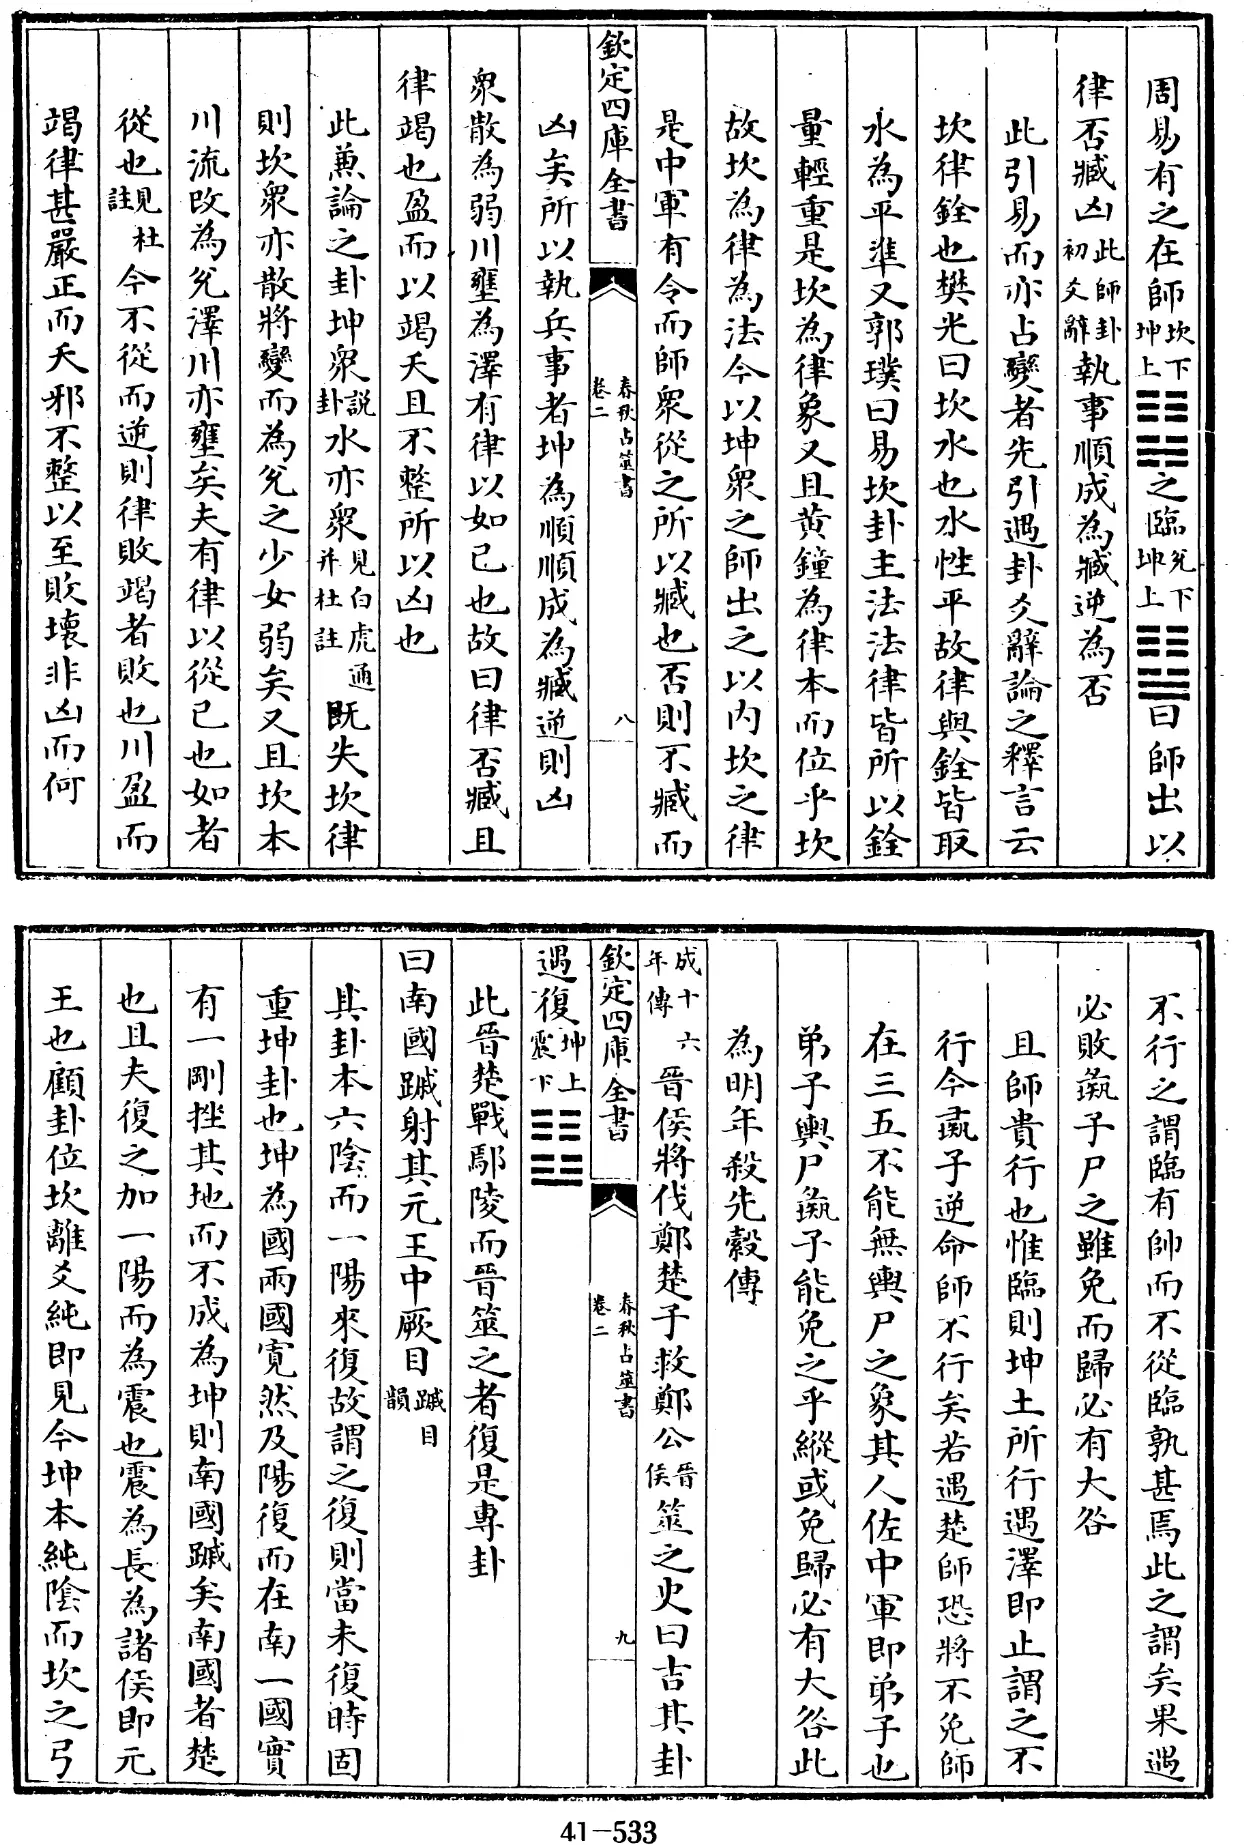 周易有之在師坎下坤上䷆之臨兌下坤上䷒曰師出以
律否臧凶此師卦初爻辭執事順成為臧逆為否
此引易而亦占變者先引遇卦爻辭論之釋言云
坎律銓也樊光曰坎水也水性平故律與銓皆取
水為平準又郭璞曰易坎卦主法法律皆所以銓
量輕重是坎為律象又且黄鐘為律本而位乎坎
故坎為律為法今以坤衆之師出之以内坎之律
是中軍有令而師衆從之所以臧也否則不臧而
欽定四庫全書
春秋占筮書
卷二
八
凶矣所以執兵事者坤為順順成為臧逆則凶
衆散為弱川壅為澤有律以如已也故曰律否臧且
律竭也盈而以竭夭且不整所以凶也
此兼論之卦坤衆説卦水亦衆見白虎通并杜註既失坎律
則坎衆亦散將變而為兌之少女弱矣又且坎本
川流改為兌澤川亦壅矣夫有律以從已也如者
從也見杜註今不從而逆則律敗竭者敗也川盈而
竭律甚嚴正而夭邪不整以至敗壞非凶而何
不行之謂臨有帥而不從臨孰甚焉此之謂矣果遇
必敗彘子尸之雖免而歸必有大咎
且師貴行也惟臨則坤土所行遇澤即止謂之不
行今彘子逆命師不行矣若遇楚師恐將不免師
在三五不能無輿尸之象其人佐中軍即弟子也
弟子輿尸彘子能免之乎縱或免歸必有大咎此
為明年殺先縠傳
成十六年傳晉侯將伐鄭楚子救鄭公晉侯筮之史曰吉其卦
欽定四庫全書
春秋占筮書
卷二
九
遇復坤上震下䷗
此晉楚戰鄢陵而晉筮之者復是專卦
曰南國䠞射其元王中厥目䠞目韻
其卦本六陰而一陽來復故謂之復則當未復時固
重坤卦也坤為國兩國寛然及陽復而在南一國實
有一剛挫其地而不成為坤則南國䠞矣南國者楚
也且夫復之加一陽而為震也震為長為諸侯即元
王也顧卦位坎離爻純即見今坤本純陰而坎之弓
41-533